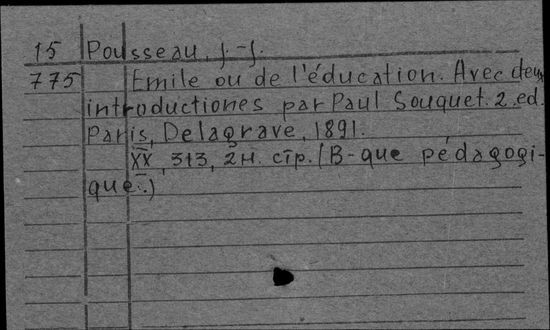 15 Pousseau, J.-J.
775 Emile ou de l'éducation. Avec deux
introductiones par Paul Souquet. 2. ed.
Paris, Delagrave, 1891.
XX, 313, 2н. стр. (B-que pédagogi-
que.)